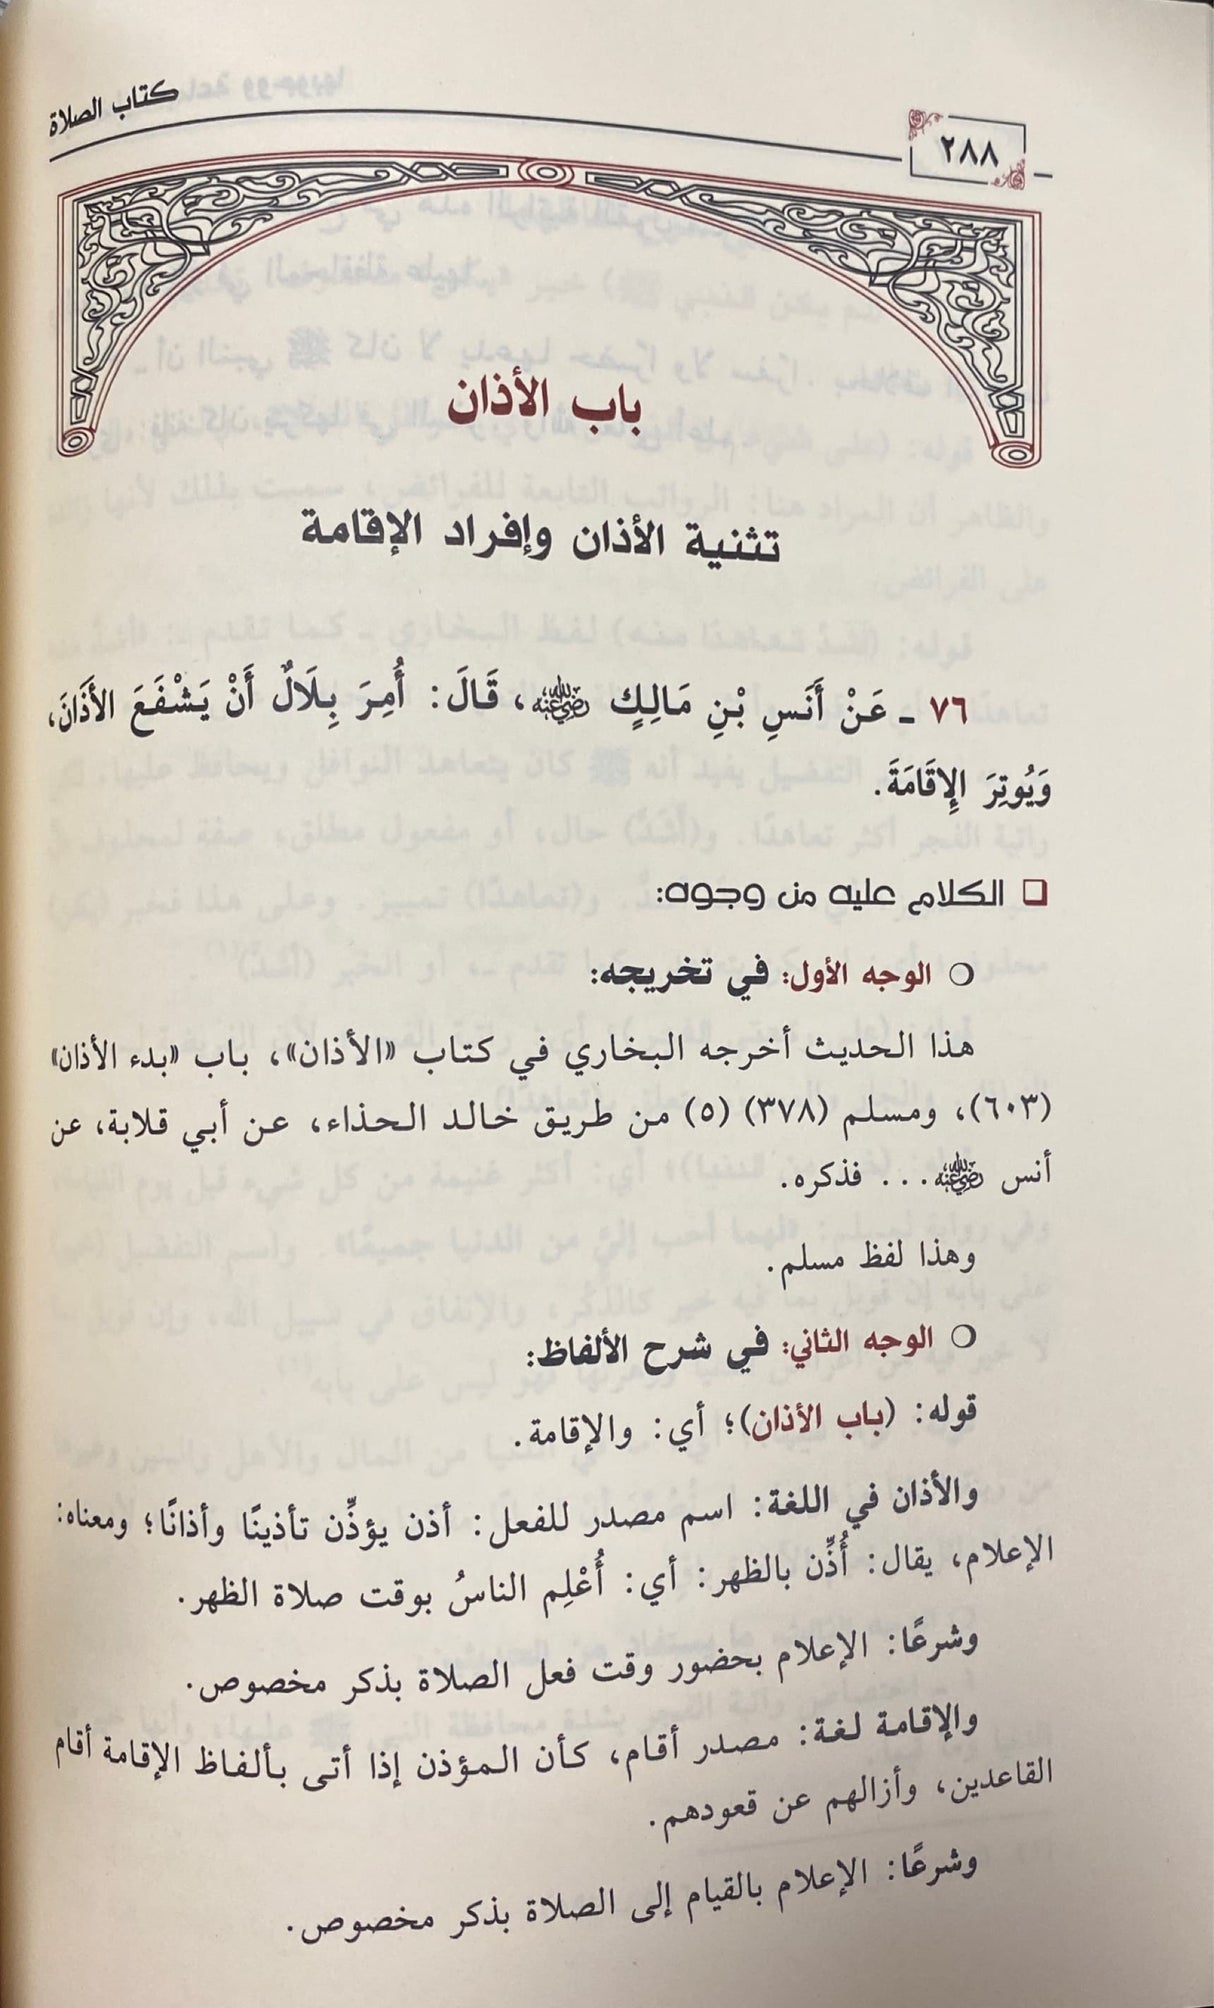 ٢٨٨
كتاب الصلاة
باب الأذان
تثنية الأذان وإفراد الإقامة
٧٦ ـ عَنْ أَنَسِ بْنِ مَالِكٍ رضي الله عنه، قَالَ: أُمِرَ بِلَالٌ أَنْ يَشْفَعَ الأَذَانَ،
وَيُوتِرَ الإِقَامَةَ.
الكلام عليه من وجوه:
الوجه الأول: في تخريجه:
هذا الحديث أخرجه البخاري في كتاب «الأذان»، باب «بدء الأذان»
(٦٠٣)، ومسلم (٣٧٨) (٥) من طريق خالد الحذاء، عن أبي قلابة، عن
أنس رضي الله عنه... فذكره.
وهذا لفظ مسلم.
الوجه الثاني: في شرح الألفاظ:
قوله: (باب الأذان)؛ أي: والإقامة.
والأذان في اللغة: اسم مصدر للفعل: أذن يؤذِّن تأذينًا وأذانًا؛ ومعناه:
الإعلام، يقال: أُذِّن بالظهر: أي: أُعْلِم الناسُ بوقت صلاة الظهر.
وشرعًا: الإعلام بحضور وقت فعل الصلاة بذكر مخصوص.
والإقامة لغة: مصدر أقام، كأن المؤذن إذا أتى بألفاظ الإقامة أقام
القاعدين، وأزالهم عن قعودهم.
وشرعًا: الإعلام بالقيام إلى الصلاة بذكر مخصوص.